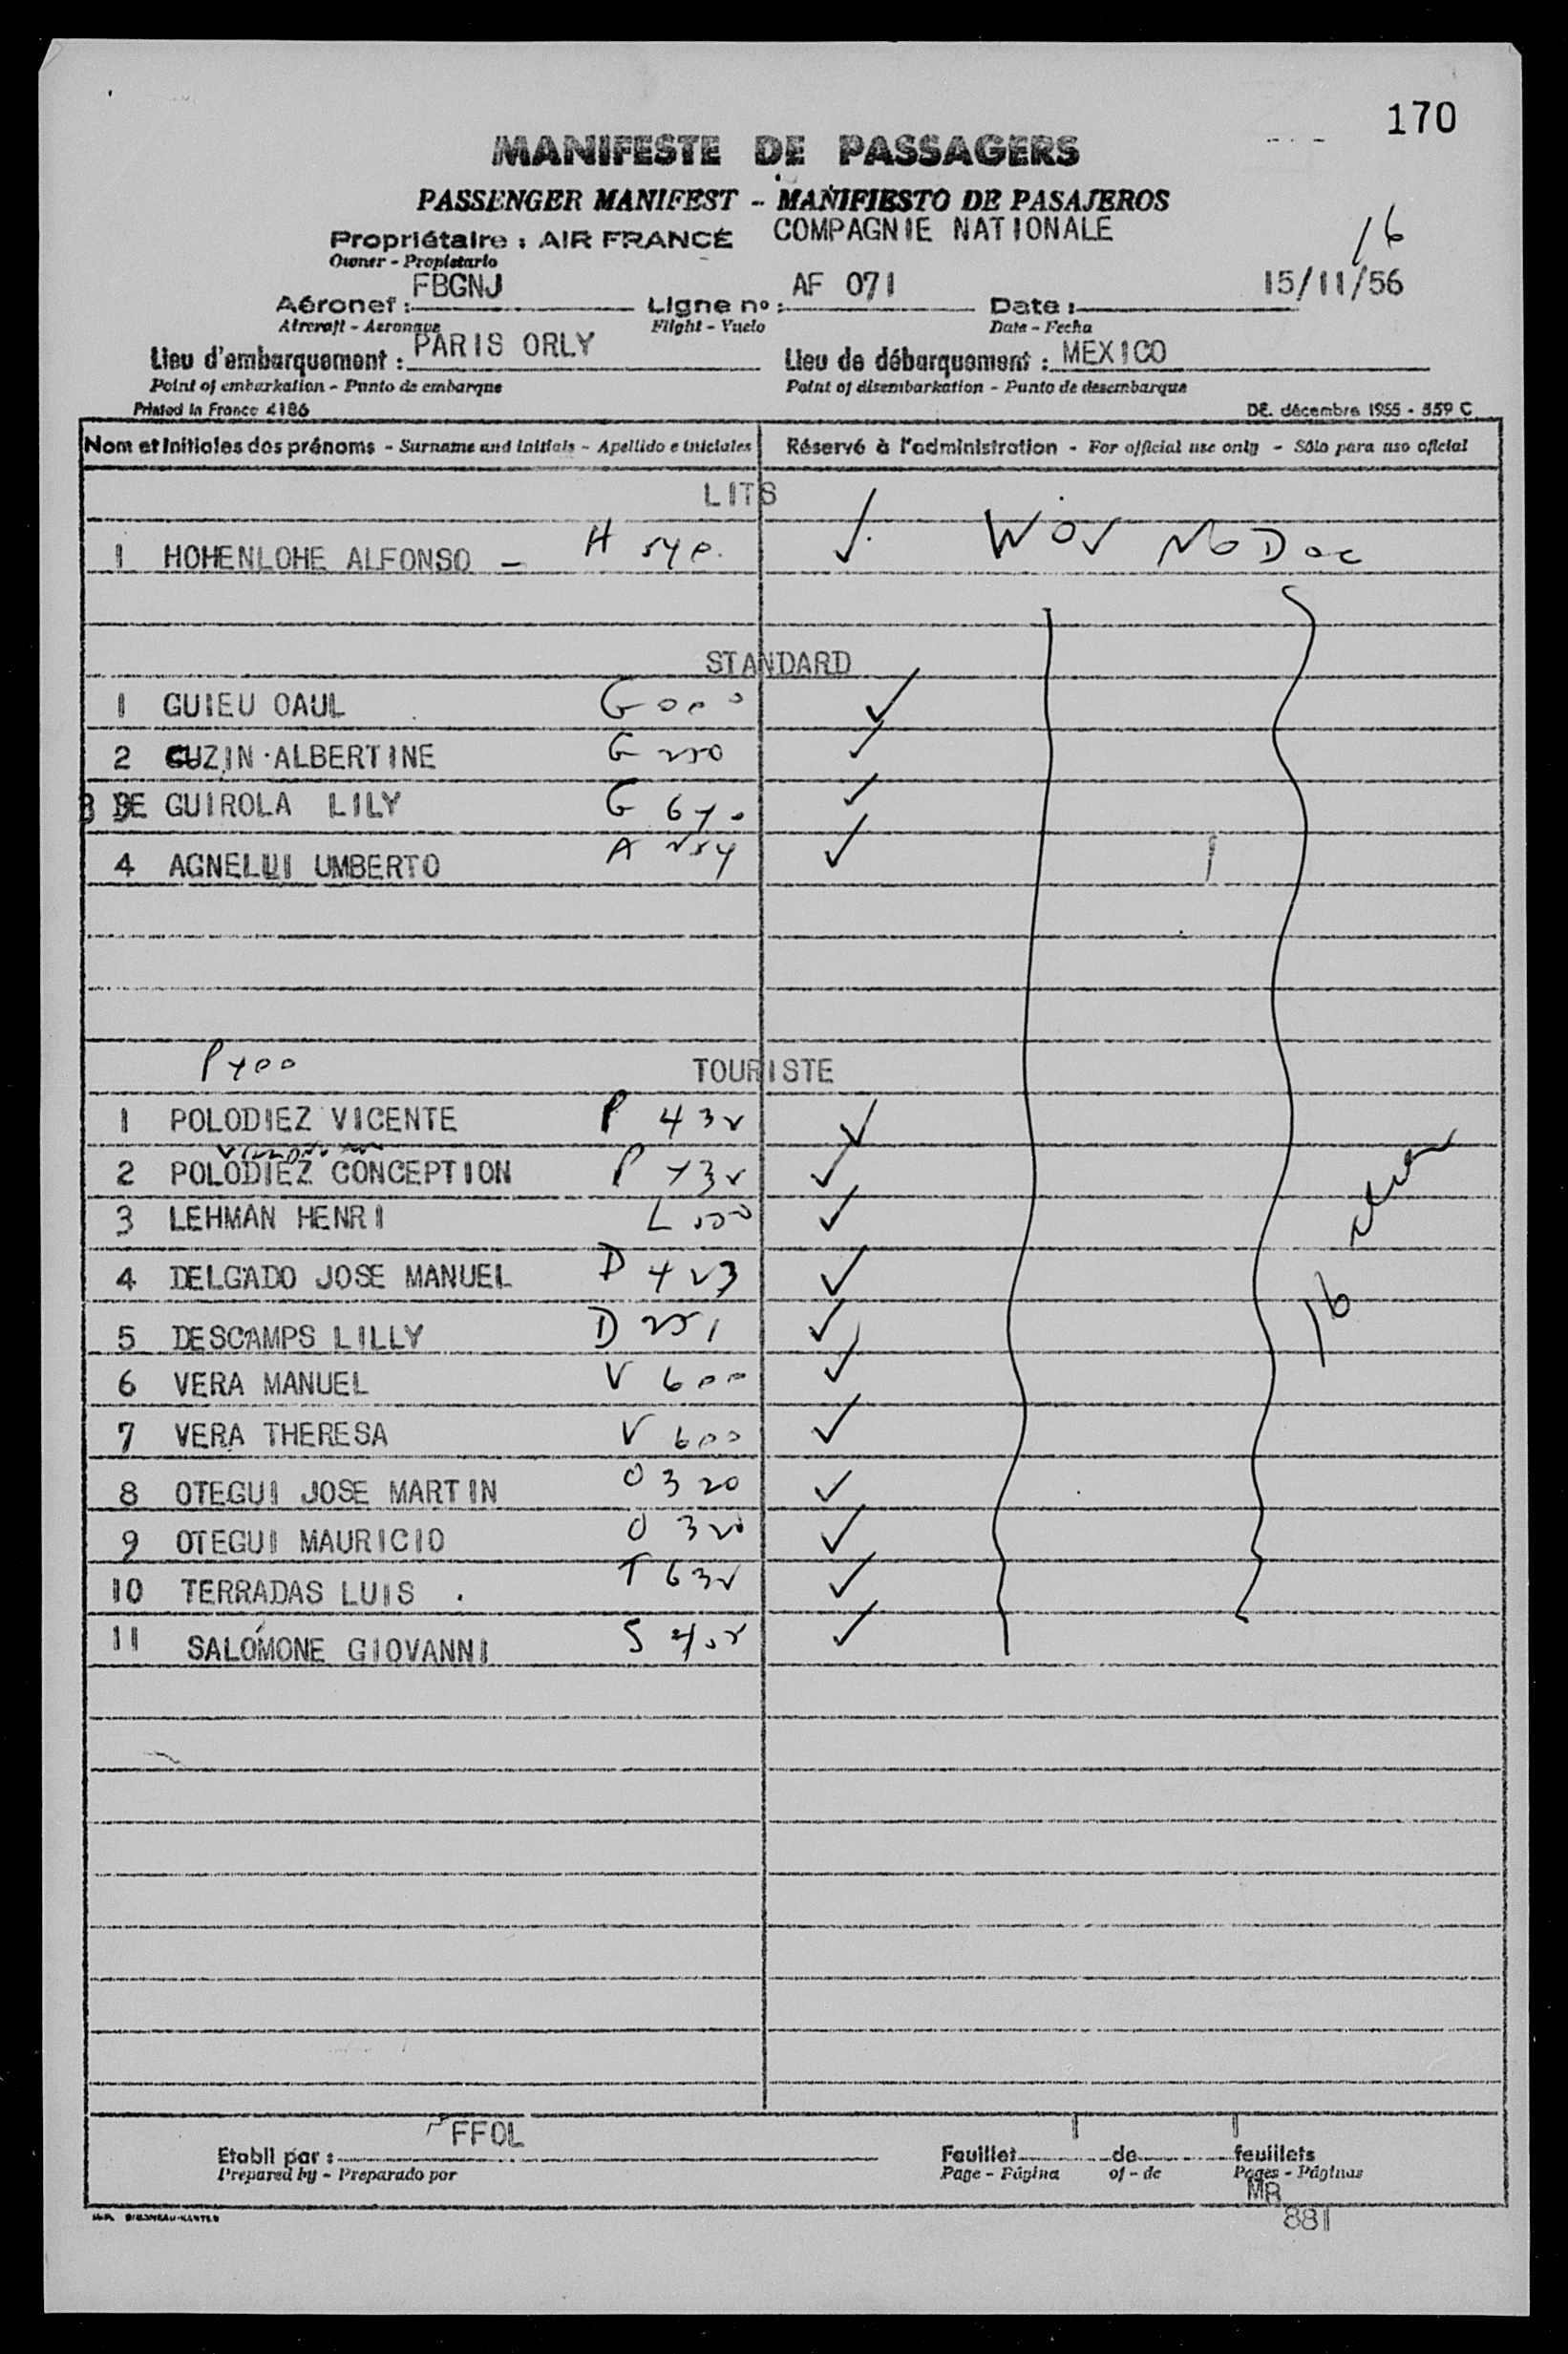 170
MANIFESTE DE PASSAGERS
PASSENGER MANIFEST - MANIFIESTO DE PASAJEROS
Propriétaire : AIR FRANCE COMPAGNIE NATIONALE
Owner - Propietario
16
FBGNJ AF 071 15/11/56
Aéronef : Ligne no : Date :
Aircraft - Aeronave Flight - Vuelo Date - Fecha
Lieu d'embarquement : PARIS ORLY Lieu de débarquement : MEXICO
Point of embarkation - Punto de embarque Point of disembarkation - Punto de desembarque
Printed in France 4186 DE. décembre 1955 - 559 C
Nom et Initiales des prénoms - Surname and initials - Apellido e iniciales Réservé à l'administration - For official use only - Sólo para uso oficial
LITS
1 HOHENLOHE ALFONSO - H 540 No Doc
STANDARD
1 GUIEU OAUL G 000
2 CUZIN ALBERTINE G 250
3 DE GUIROLA LILY G 640
4 AGNELLI UMBERTO A 254
P 400
TOURISTE
1 POLODIEZ VICENTE P 432
2 POLODIEZ CONCEPTION P 432
3 LEHMAN HENRI L 550
4 DELGADO JOSE MANUEL D 423
5 DESCAMPS LILLY D 251
6 VERA MANUEL V 600
7 VERA THERESA V 600
8 OTEGUI JOSE MARTIN O 320
9 OTEGUI MAURICIO O 320
10 TERRADAS LUIS . T 632
11 SALOMONE GIOVANNI S 455
16
FFOL 1 1
Etabli par : Feuillet de feuillets
Prepared by - Preparado por Page - Página of - de Pages - Páginas
MR
881